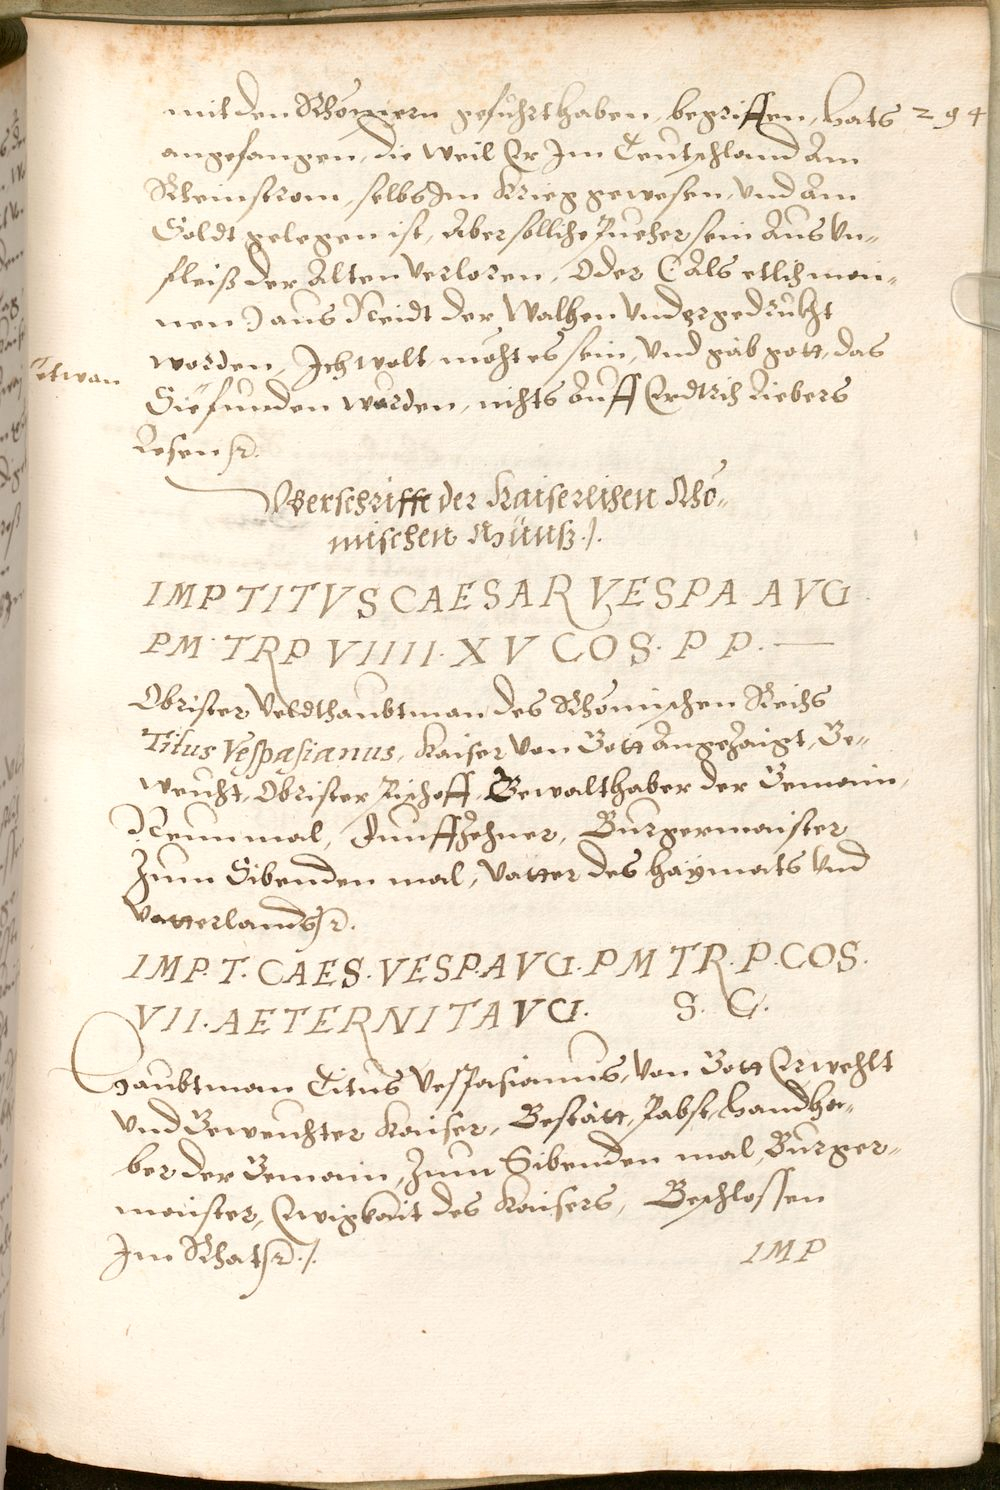 mit den Rhömern gefuhrt haben, begriffen, Hats 294
angefangen, die weil Er Jm Teutschland am
Rheinstrom, selbs Jm Krieg gewesen, Vnd am
Soldt gelegen ist, Aber solliche Puecher sein aus Vn-
fleiß der Alten Verloren, Oder (Als etlich mai-
nen) aus Neidt der Walhen Vndergedrukht
etwan
worden, Jch wolt, möht es sein, Vnd gäb gott, das
Sie funden wurden, nichts Auff Erdtrich Liebers
Lesen etc.
Vberschrifft der Kaiserlichen Rhö-
mischen Müntz ./.
IMP TITVS CAESAR VESPA AVG
PM TRP VIIII. XV COS. P P. —
Obrister Veldthaubtman des Rhömischen Reichs
Titus Vespasianus, Kaiser Von Gott Angezaigt, Ge-
weicht, Obrister Bischoff, Gewalthaber der Gemain,
Neunmal, Funffzehner, Burgermaister
Zum Sibenden mal, Vatter des haymats Vnd
Vatterlands etc.
IMP. T. CAES. VESP. AVG. P M TR. P. COS.
VII. AETERNITAVG. S. C.
Haubtman Titus Vespasianus, Von Gott Erwehlt
Vnd Geweichter Kaiser, Bestätt, Pabst, Handha-
ber der Gemain, Zum Sibenden mal, Burger-
maister, Ewigkait des Kaisers, Beschlossen
Jm Rhat etc. ./. IMP